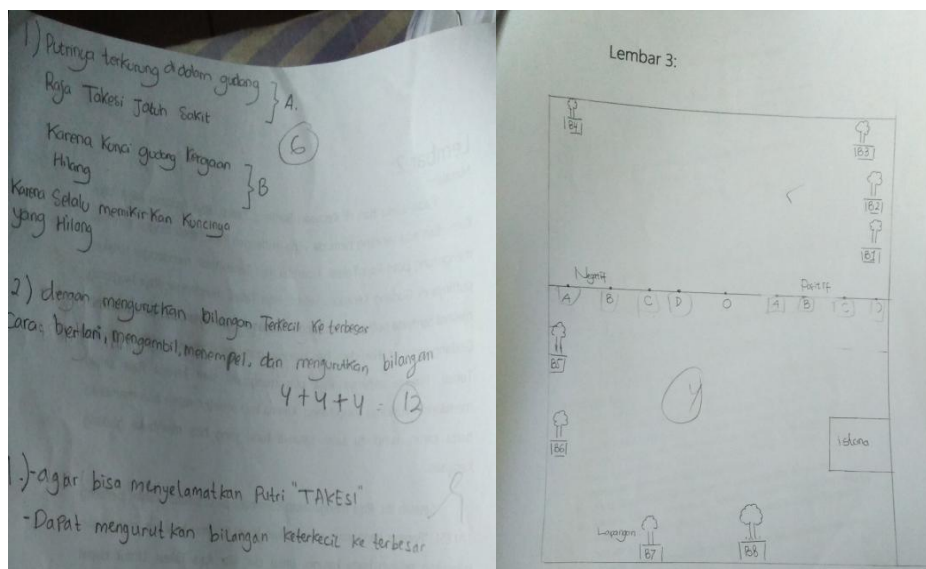 1) Putrinya terkurung di dalam gudang
Raja Takesi Jatuh Sakit
} A.
6
Karena Kunci gudang Kerajaan
Hilang
} B
Karena Selalu memikirkan Kuncinya
yang Hilang
2) dengan mengurutkan bilangan Terkecil Ke terbesar
Cara: berlari, mengambil, menempel, dan mengurutkan bilangan
4+4+4 = 12
1.) - agar bisa menyelamatkan Putri "TAKESI"
- Dapat mengurutkan bilangan keterkecil ke terbesar
Lembar 3:
B4
B3
B2
B1
Negatif
Positif
A B C D O A B C D
B5
4
B6
istana
Lapangan
B7
B8